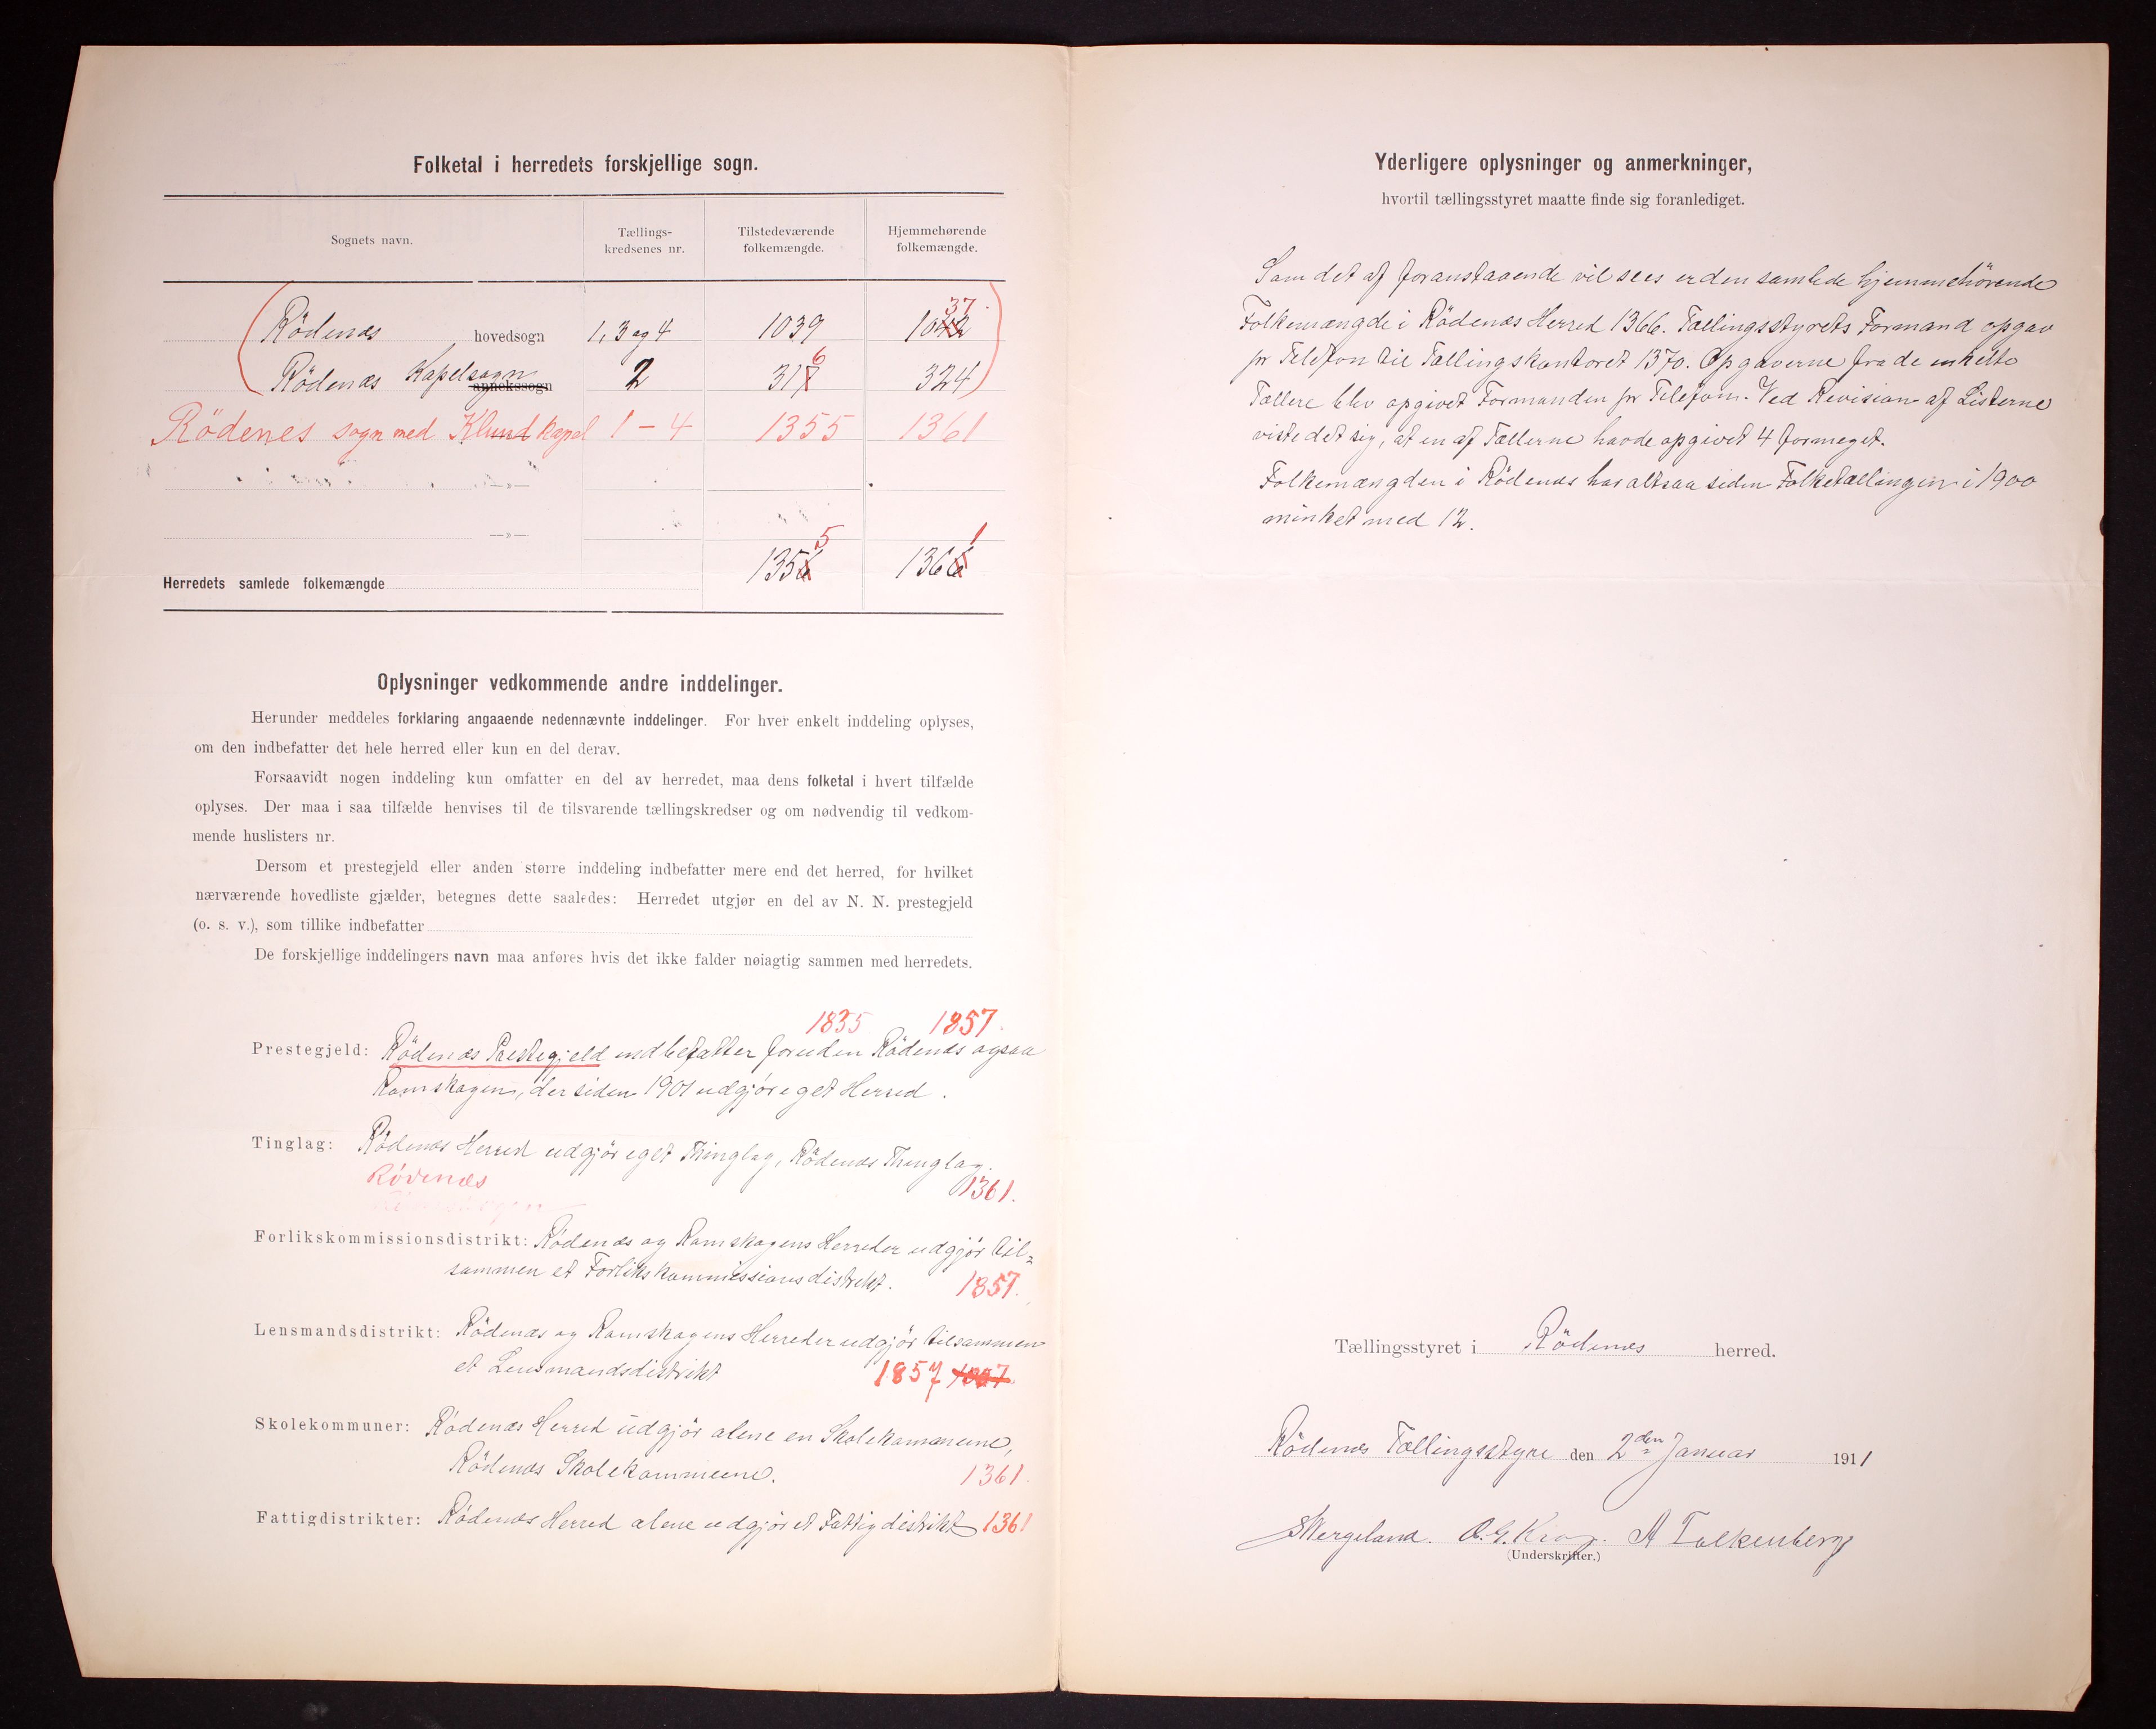 Folketal i herredets forskjellige sogn.
Sognets navn. Tællings-kredsenes nr. Tilstedeværende folkemængde. Hjemmehørende folkemængde.
Rödenæs hovedsogn 1, 3 og 4 1039 1042 37
Rödenæs Kapelsogn annekssogn 2 317 6 324
Rödenes sogn med Klund kapel 1 - 4 1355 1361
—»—
—»—
Herredets samlede folkemængde 1356 5 1366 1
Oplysninger vedkommende andre inddelinger.
Herunder meddeles forklaring angaaende nedennævnte inddelinger. For hver enkelt inddeling oplyses,
om den indbefatter det hele herred eller kun en del derav.
Forsaavidt nogen inddeling kun omfatter en del av herredet, maa dens folketal i hvert tilfælde
oplyses. Der maa i saa tilfælde henvises til de tilsvarende tællingskredser og om nødvendig til vedkom-
mende huslisters nr.
Dersom et prestegjeld eller anden større inddeling indbefatter mere end det herred, for hvilket
nærværende hovedliste gjælder, betegnes dette saaledes: Herredet utgjør en del av N. N. prestegjeld
(o. s. v.), som tillike indbefatter
De forskjellige inddelingers navn maa anføres hvis det ikke falder nøiagtig sammen med herredets.
1835 1857.
Prestegjeld: Rödenæs Prestegjeld indbefatter foruden Rödenæs ogsaa
Romskogen, der siden 1901 udgjör eget Herred.
Tinglag: Rödenæs Herred udgjör eget Thinglag, Rödenæs Thinglag.
Rödenæs 1361.
Forlikskommissionsdistrikt: Rödenæs og Romskogens Herreder udgjör til=
sammen et Forlikskommissionsdistrikt. 1857.
Lensmandsdistrikt: Rödenæs og Romskogens Herreder udgjör tilsammen
et Lensmandsdistrikt 1857
Skolekommuner: Rödenæs Herred udgjör alene en Skolekommune,
Rödenæs Skolekommune. 1361.
Fattigdistrikter: Rödenæs Herred alene udgjör et Fattigdistrikt 1361
Yderligere oplysninger og anmerkninger,
hvortil tællingsstyret maatte finde sig foranlediget.
Som det af foranstaaende vil sees er den samlede hjemmehörende
Folkemængde i Rödenæs Herred 1366. Tællingsstyrets Formand opgav
pr Telefon til Tællingskontoret 1370. Opgaverne fra de enkelte
Tællere blev opgivet Formanden pr Telefon. Ved Revision af Listerne
viste det sig, at en af Tællerne havde opgivet 4 formeget.
Folkemængden i Rödenæs har altsaa siden Folketællingen i 1900
minket med 12.
Tællingsstyret i Rödenæs herred.
Rödenæs Tællingsstyre den 2den Januar 1911
SWergeland. O. G. Krog. A Falkenberg
(Underskrifter.)